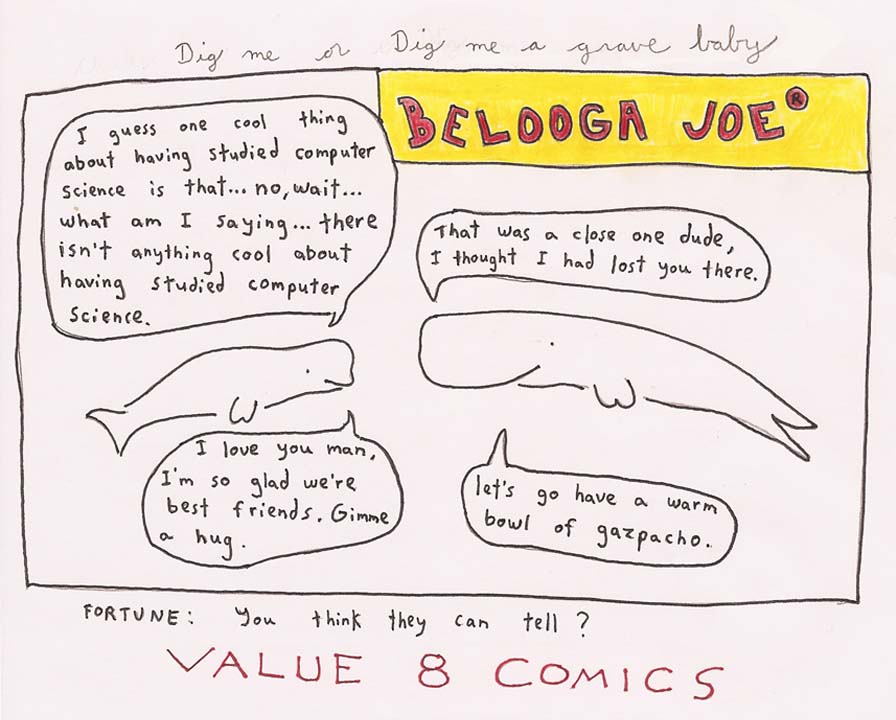 Dig me or Dig me a grave baby
BELOOGA JOE®
I guess one cool thing
about having studied computer
science is that... no, wait...
what am I saying... there
isn't anything cool about
having studied computer
science.
That was a close one dude,
I thought I had lost you there.
I love you man,
I'm so glad we're
best friends. Gimme
a hug.
let's go have a warm
bowl of gazpacho.
FORTUNE: You think they can tell?
VALUE 8 COMICS